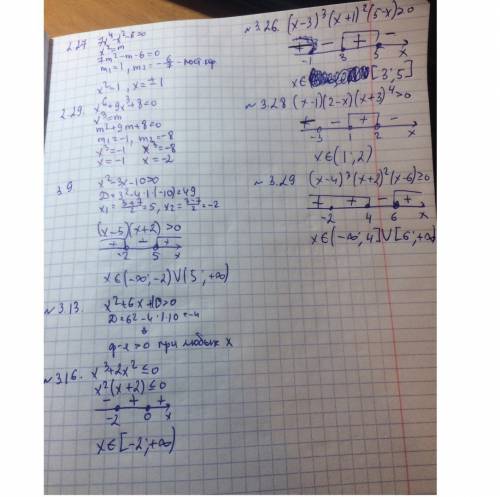 2.27. 7x⁴-x²-6=0
x²=m
7m²-m-6=0
m₁=1, m₂=-6/7 - пост. кор.
x²=1, x=±1
2.29. x⁶+9x³+8=0
x³=m
m²+9m+8=0
m₁=-1, m₂=-8
x³=-1 x³=-8
x=-1 x=-2
3.9 x²-3x-10>0
D=3²-4·1·(-10)=49
x₁=(3+7)/2=5, x₂=(3-7)/2=-2
(x-5)(x+2)>0
+ - +
-2 5 x
x∈(-∞;-2)∨(5;+∞)
~3.13. x²+6x+10>0
D=6²-4·1·10=-4
ф-я >0 при любых x
~3.16. x³+2x²≤0
x²(x+2)≤0
- + +
-2 0 x
x∈[-2;+∞)
~3.26. (x-3)³(x+1)²(5-x)≥0
- - + -
-1 3 5 x
x∈ [3;5]
~3.28 (x-1)(2-x)(x+3)⁴>0
- - + -
-3 1 2 x
x∈(1;2)
~3.29 (x-4)³(x+2)²(x-6)≥0
+ + - +
-2 4 6 x
x∈(-∞;4]∨[6;+∞)